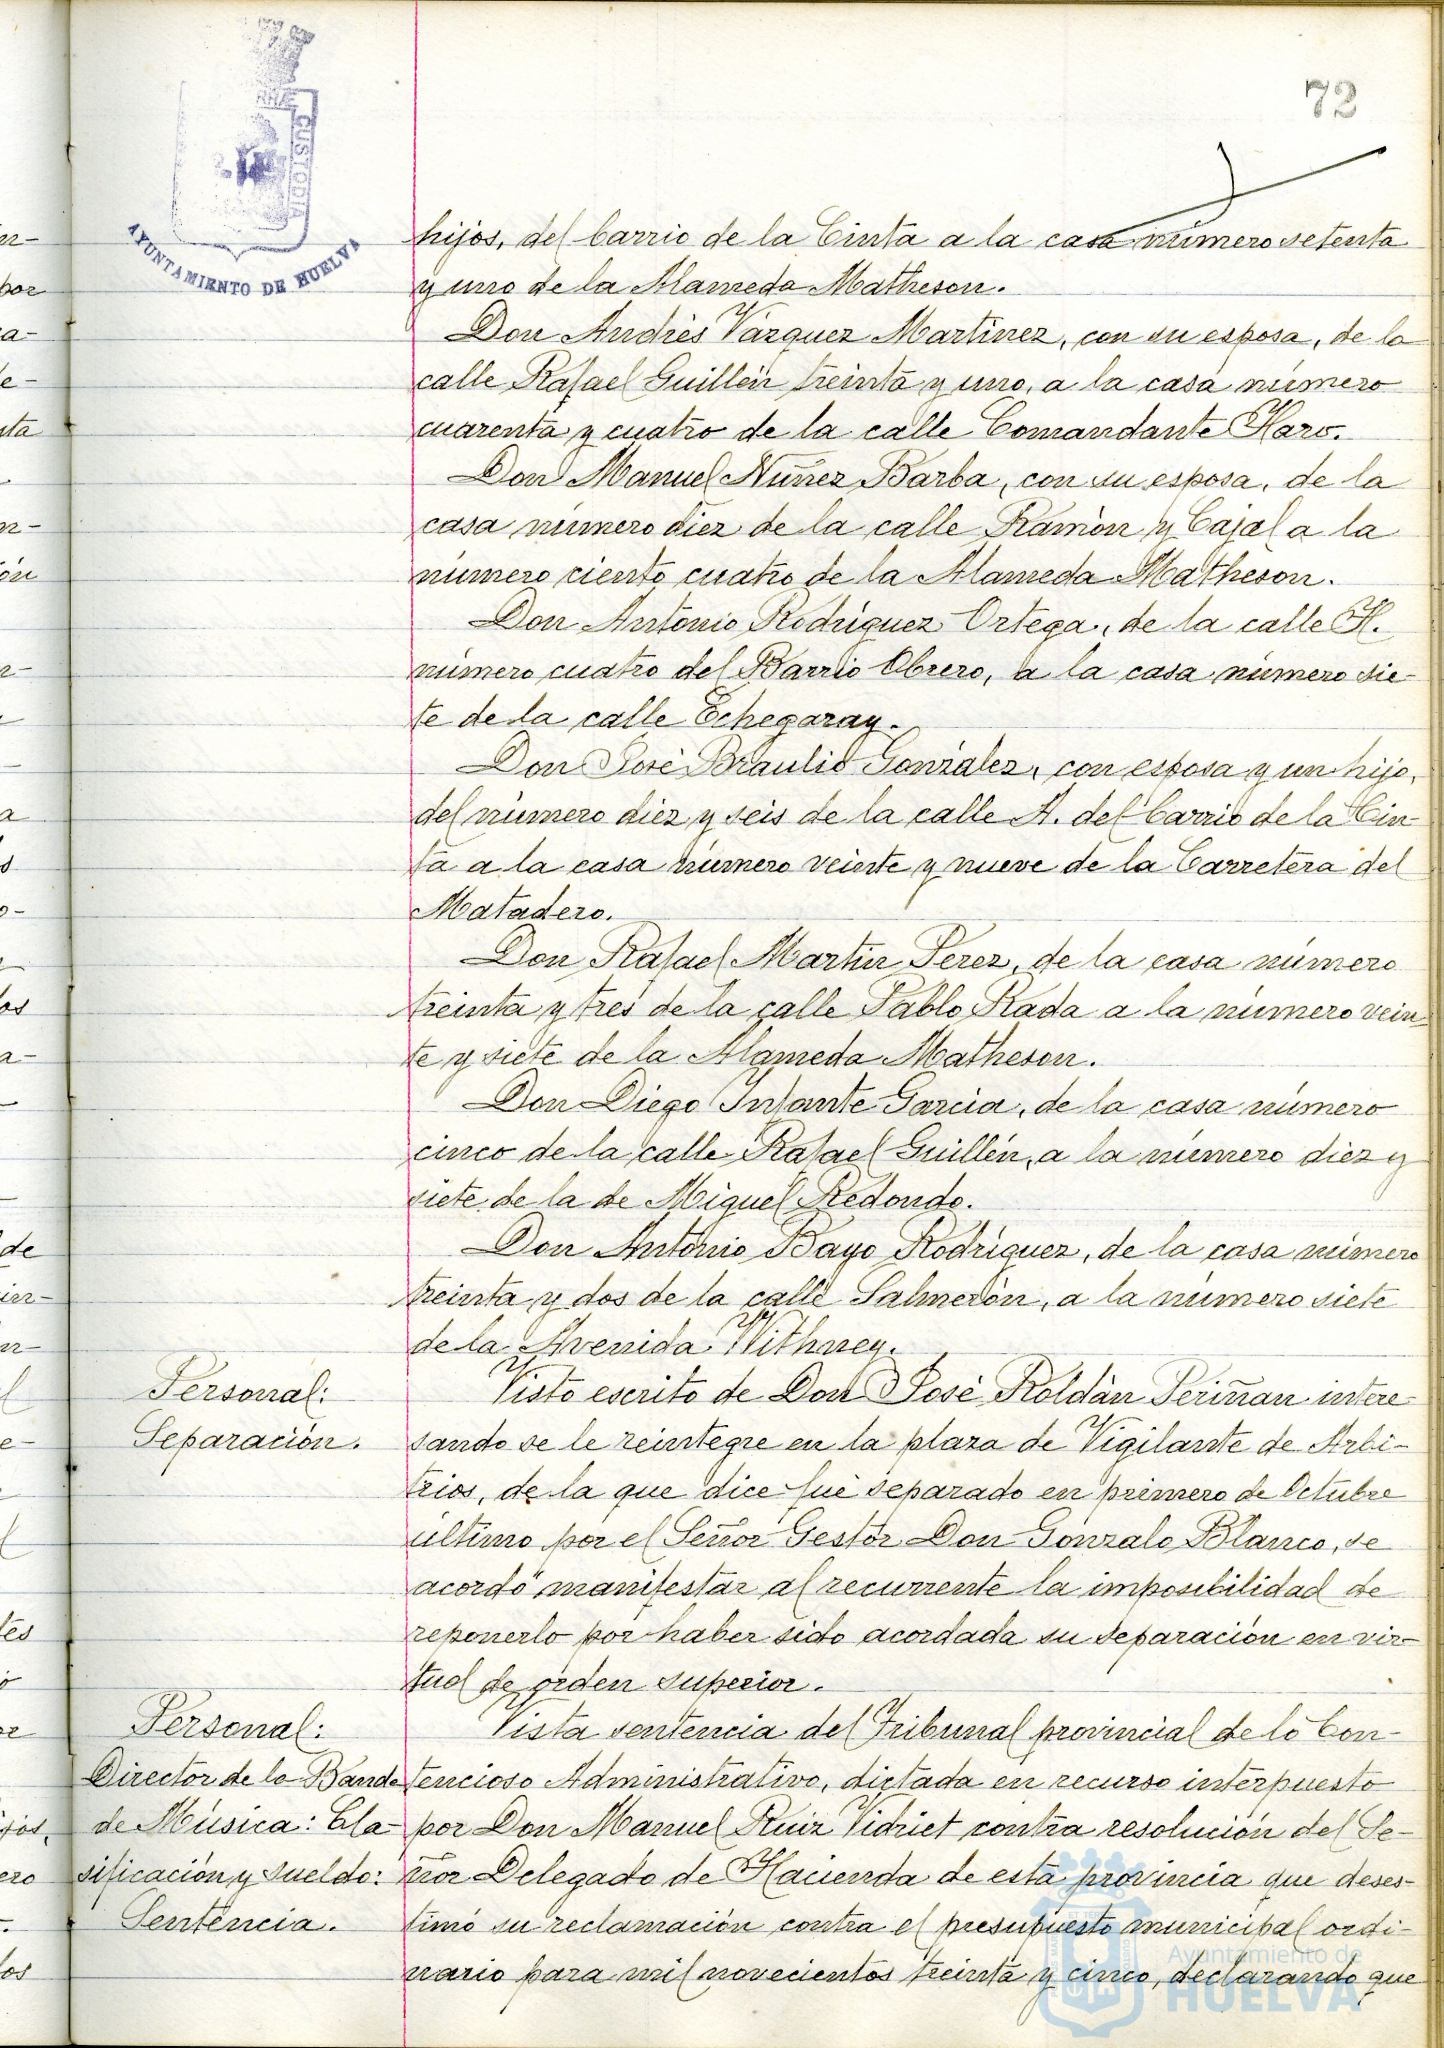 72
AYUNTAMIENTO DE HUELVA
CUSTODIA
hijos, del barrio de la Cinta a la casa número setenta
y uno de la Alameda Matheson.
Don Andrés Vázquez Martínez, con su esposa, de la
calle Rafael Guillén treinta y uno, a la casa número
cuarenta y cuatro de la calle Comandante Haro.
Don Manuel Núñez Barba, con su esposa, de la
casa número diez de la calle Ramón y Cajal a la
número ciento cuatro de la Alameda Matheson.
Don Antonio Rodríguez Ortega, de la calle H.
número cuatro del Barrio Obrero, a la casa número sie-
te de la calle Echegaray.
Don José Braulio González, con esposa y un hijo,
del número diez y seis de la calle A. del barrio de la Cin-
ta a la casa número veinte y nueve de la Carretera del
Matadero.
Don Rafael Martín Pérez, de la casa número
treinta y tres de la calle Pablo Rada a la número vein-
te y siete de la Alameda Matheson.
Don Diego Infante García, de la casa número
cinco de la calle Rafael Guillén, a la número diez y
siete de la de Miguel Redondo.
Don Antonio Bayo Rodríguez, de la casa número
treinta y dos de la calle Salmerón, a la número siete
de la Avenida Withney.
Personal:
Separación.
Visto escrito de Don José Roldán Periñan intere-
sando se le reintegre en la plaza de Vigilante de Arbi-
trios, de la que dice fué separado en primero de Octubre
último por el Señor Gestor Don Gonzalo Blanco, se
acordó manifestar al recurrente la imposibilidad de
reponerlo por haber sido acordada su separación en vir-
tud de orden superior.
Personal:
Director de la Banda
de Música: Cla-
sificación y sueldo:
Sentencia.
Vista sentencia del Tribunal provincial de lo Con-
tencioso Administrativo, dictada en recurso interpuesto
por Don Manuel Ruiz Vidriet contra resolución del Se-
ñor Delegado de Hacienda de esta provincia que deses-
timó su reclamación contra el presupuesto municipal ordi-
nario para mil novecientos treinta y cinco, declarando que
Ayuntamiento de
HUELVA